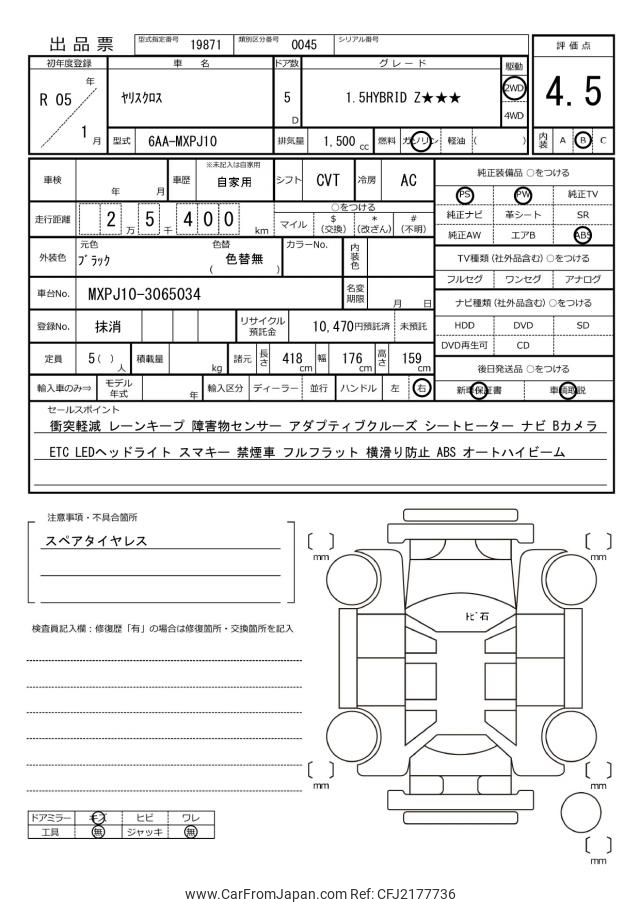 出品票 型式指定番号 19871 類別区分番号 0045 シリアル番号
評価点
4.5
内装 A B C
初年度登録 車名 ドア数 グレード 駆動
R 05 年 1 月
ヤリスクロス
5 D
1.5HYBRID Z★★★
2WD
4WD
型式 6AA-MXPJ10 排気量 1,500 cc 燃料 ガソリン 軽油 ( )
車検 年 月 車歴 ※未記入は自家用 自家用 シフト CVT 冷房 AC
走行距離 2 万 5 千 4 0 0 km
○をつける
マイル $(交換) *(改ざん) #(不明)
外装色 元色 ブラック 色替 ( 色替無 ) カラーNo. 内装色
車台No. MXPJ10-3065034 名変期限 月 日
登録No. 抹消 リサイクル預託金 10,470円預託済 未預託
定員 5 ( ) 人 積載量 kg 諸元 長さ 418 cm 幅 176 cm 高さ 159 cm
輸入車のみ⇒ モデル年式 年 輸入区分 ディーラー 並行 ハンドル 左 右
純正装備品 ○をつける
PS PW 純正TV
純正ナビ 革シート SR
純正AW エアB ABS
TV種類(社外品含む)○をつける
フルセグ ワンセグ アナログ
ナビ種類(社外品含む)○をつける
HDD DVD SD
DVD再生可 CD
後日発送品 ○をつける
新車保証書 車輌取説
セールスポイント
衝突軽減 レーンキープ 障害物センサー アダプティブクルーズ シートヒーター ナビ Bカメラ
ETC LEDヘッドライト スマキー 禁煙車 フルフラット 横滑り防止 ABS オートハイビーム
注意事項・不具合箇所
スペアタイヤレス
検査員記入欄:修復歴「有」の場合は修復箇所・交換箇所を記入
〔 〕mm
〔 〕mm
トビ石
〔 〕mm
〔 〕mm
〔 〕mm
ドアミラー キズ ヒビ ワレ
工具 無 ジャッキ 無
www.CarFromJapan.com Ref: CFJ2177736